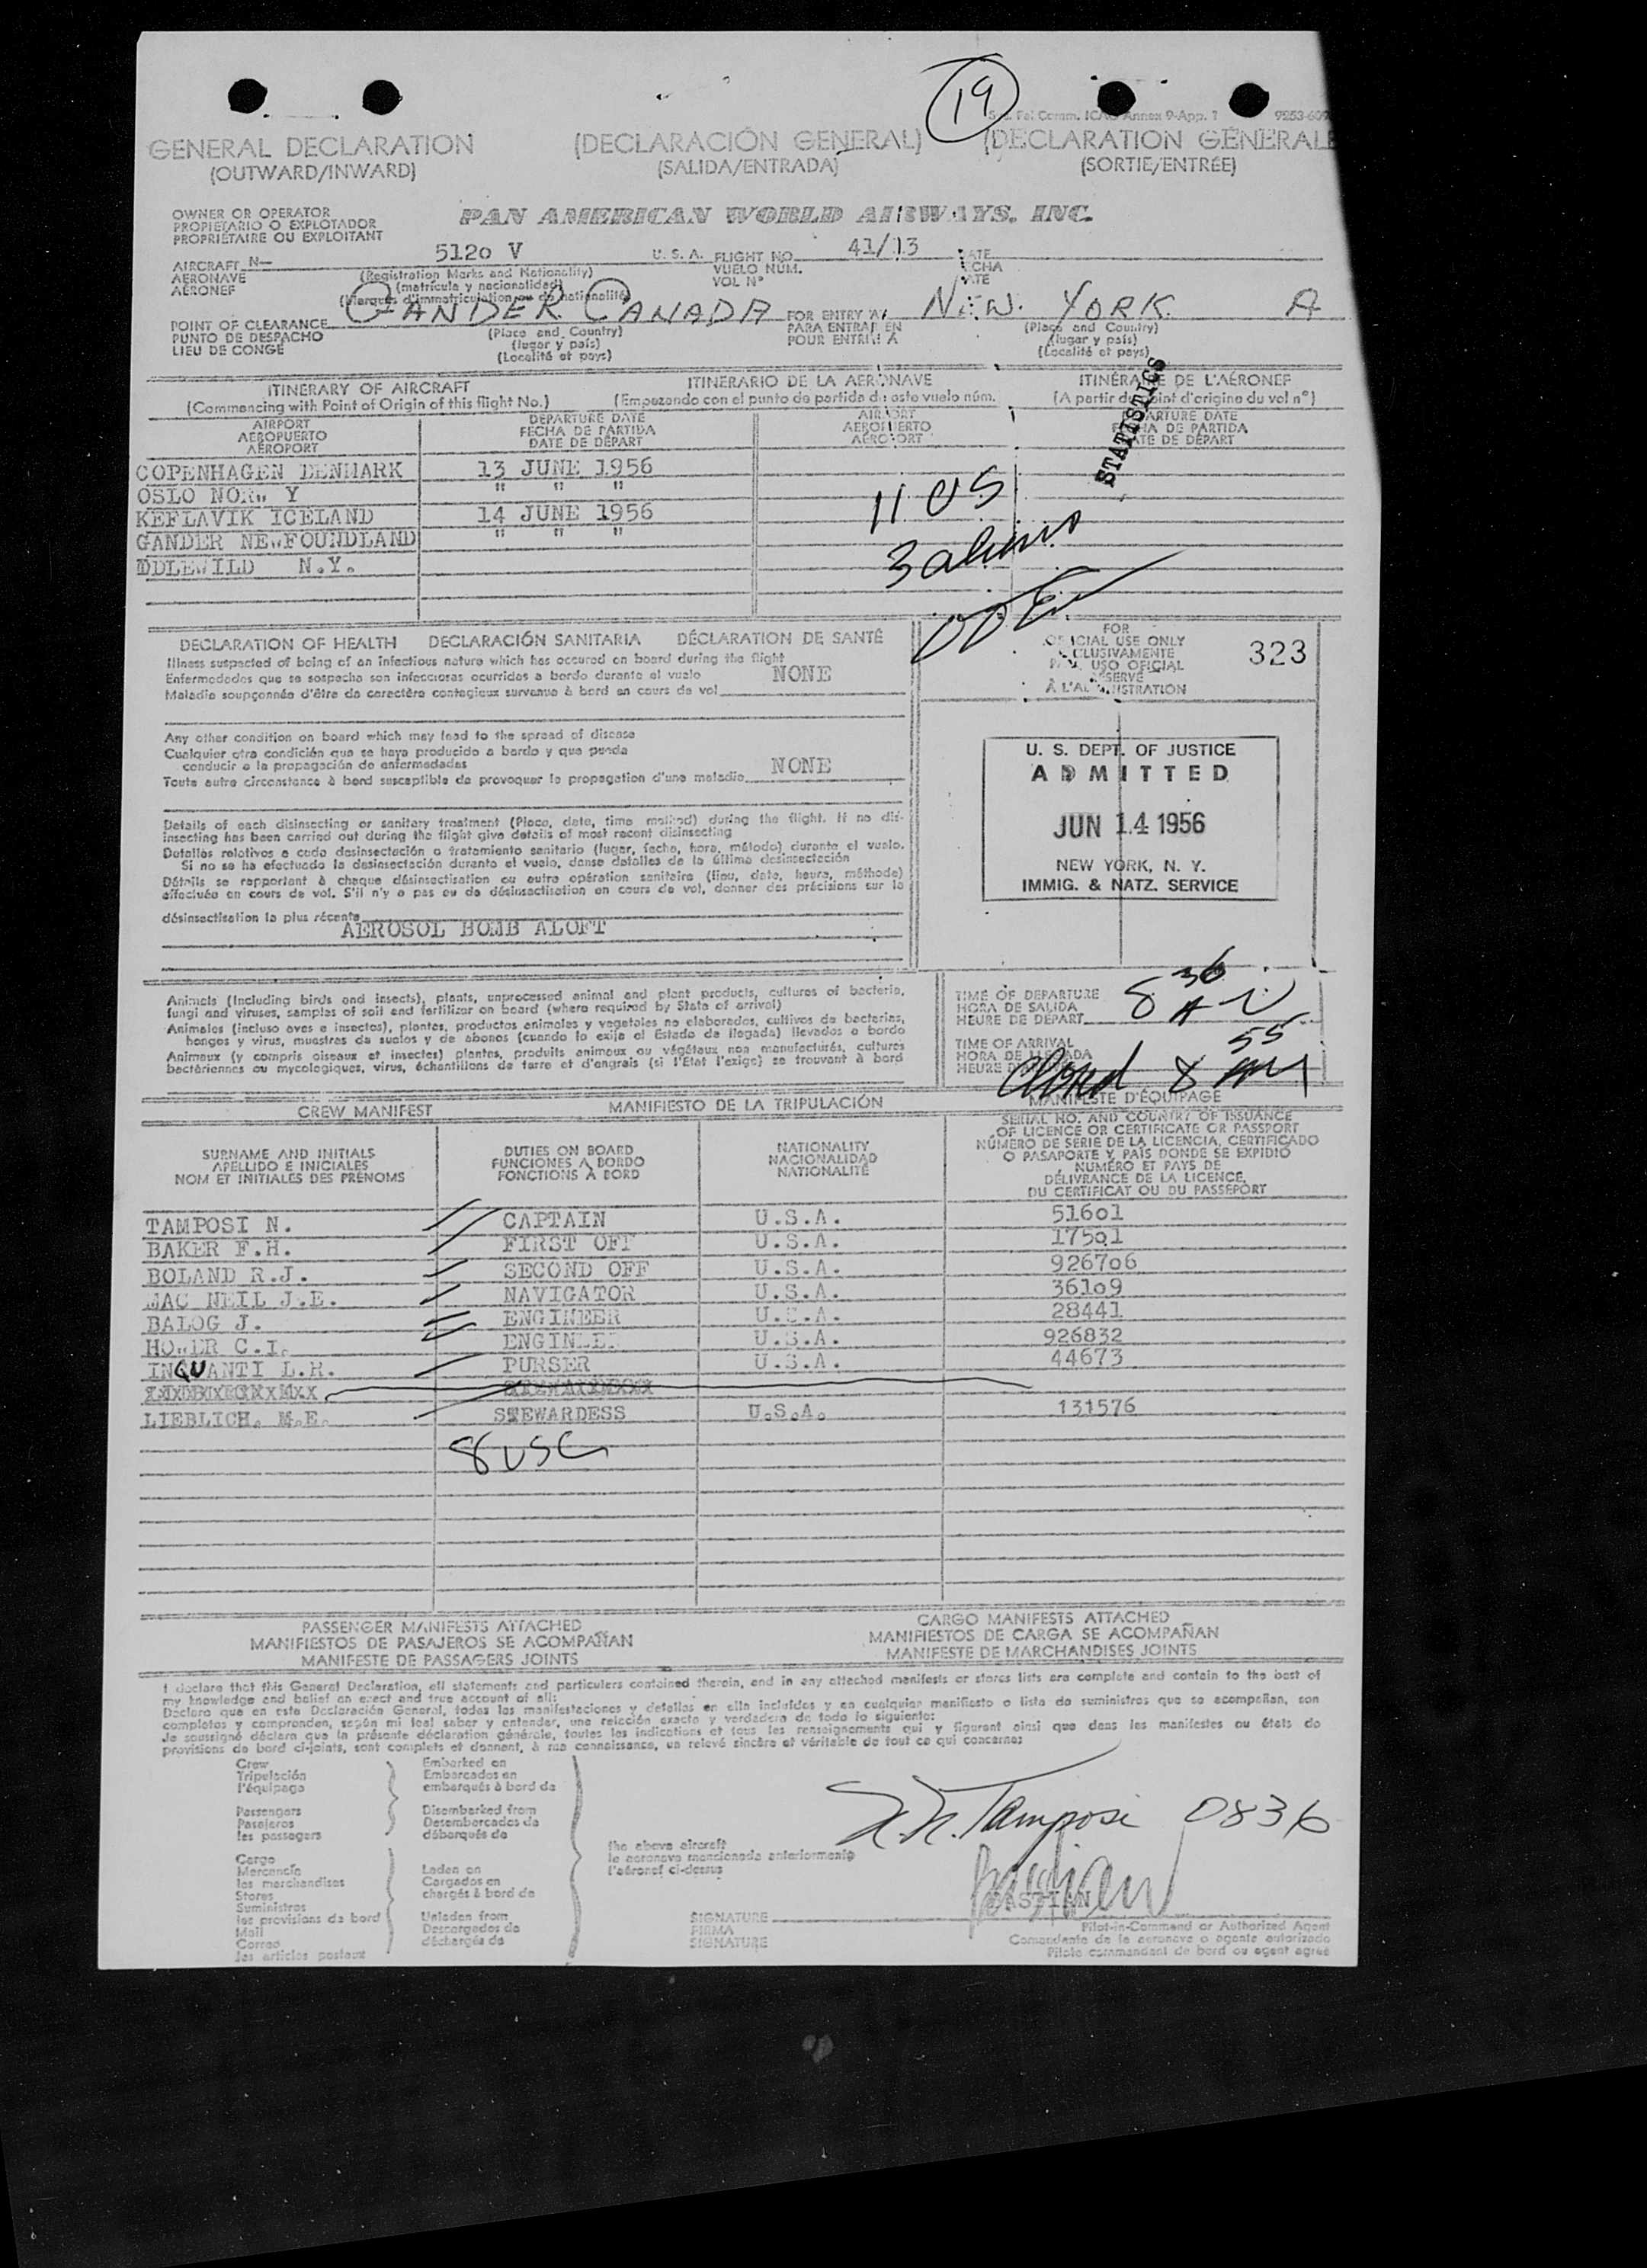 19
Annex 9-App. 1
GENERAL DECLARATION (DECLARACIÓN GENERAL) (DÉCLARATION GÉNÉRALE
(OUTWARD/INWARD) (SALIDA/ENTRADA) (SORTIE/ENTRÉE)
OWNER OR OPERATOR
PROPIETARIO O EXPLOTADOR
PROPRIÉTAIRE OU EXPLOITANT
PAN AMERICAN WORLD AIRWAYS, INC.
AIRCRAFT N— 5120 V U.S.A. FLIGHT NO. 41/13
AERONAVE (Registration Marks and Nationality) VUELO NÚM.
AÉRONEF (matrícula y nacionalidad) VOL Nº
(Marques d'immatriculation ou de nationalité)
POINT OF CLEARANCE GANDER CANADA FOR ENTRY AT NEW YORK A
PUNTO DE DESPACHO (Place and Country) PARA ENTRAR EN (Place and Country)
LIEU DE CONGÉ (lugar y país) POUR ENTRÉE À (lugar y país)
(Localité et pays) (Localité et pays)
STATISTICS
ITINERARY OF AIRCRAFT ITINERARIO DE LA AERONAVE ITINÉRAIRE DE L'AÉRONEF
(Commencing with Point of Origin of this flight No.) (Empezando con el punto de partida de este vuelo núm. (A partir du point d'origine du vol nº)
AIRPORT DEPARTURE DATE AIRPORT DEPARTURE DATE
AEROPUERTO FECHA DE PARTIDA AEROPUERTO FECHA DE PARTIDA
AÉROPORT DATE DE DÉPART AÉROPORT DATE DE DÉPART
COPENHAGEN DENMARK 13 JUNE 1956
OSLO NORWAY " " "
KEFLAVIK ICELAND 14 JUNE 1956
GANDER NEWFOUNDLAND " " "
IDLEWILD N.Y.
11 US
3 aliens
DECLARATION OF HEALTH DECLARACIÓN SANITARIA DÉCLARATION DE SANTÉ
Illness suspected of being of an infectious nature which has occured on board during the flight
Enfermedades que se sospecha son infecciosas ocurridas a bordo durante el vuelo NONE
Maladie soupçonnée d'être de caractère contagieux survenue à bord en cours de vol
FOR
OFFICIAL USE ONLY
EXCLUSIVAMENTE
PARA USO OFICIAL
RÉSERVÉ
À L'ADMINISTRATION
323
Any other condition on board which may lead to the spread of disease
Cualquier otra condición que se haya producido a bordo y que pueda
conducir a la propagación de enfermedades NONE
Toute autre circonstance à bord susceptible de provoquer la propagation d'une maladie
U. S. DEPT. OF JUSTICE
ADMITTED
JUN 14 1956
NEW YORK, N. Y.
IMMIG. & NATZ. SERVICE
Details of each disinsecting or sanitary treatment (Place, date, time method) during the flight. If no dis-
insecting has been carried out during the flight give details of most recent disinsecting
Detalles relativos a cada desinsectación o tratamiento sanitario (lugar, fecha, hora, método) durante el vuelo.
Si no se ha efectuado la desinsectación durante el vuelo, dense detalles de la última desinsectación
Détails se rapportant à chaque désinsectisation ou autre opération sanitaire (lieu, date, heure, méthode)
effectuée en cours de vol. S'il n'y a pas eu de désinsectisation en cours de vol, donner des précisions sur la
désinsectisation la plus récente
AEROSOL BOMB ALOFT
Animals (including birds and insects), plants, unprocessed animal and plant products, cultures of bacteria,
fungi and viruses, samples of soil and fertilizer on board (where required by State of arrival)
Animales (incluso aves e insectos), plantas, productos animales y vegetales no elaborados, cultivos de bacterias,
hongos y virus, muestras de suelos y de abonos (cuando lo exija el Estado de llegada) llevados a bordo
Animaux (y compris oiseaux et insectes) plantes, produits animaux ou végétaux non manufacturés, cultures
bactériennes ou mycologiques, virus, échantillons de terre et d'engrais (si l'État l'exige) se trouvant à bord
TIME OF DEPARTURE 8 36
HORA DE SALIDA
HEURE DE DÉPART
TIME OF ARRIVAL 55
HORA DE LLEGADA
HEURE 8
CREW MANIFEST MANIFIESTO DE LA TRIPULACIÓN MANIFESTE D'ÉQUIPAGE
SURNAME AND INITIALS
APELLIDO E INICIALES
NOM ET INITIALES DES PRÉNOMS
DUTIES ON BOARD
FUNCIONES A BORDO
FONCTIONS À BORD
NATIONALITY
NACIONALIDAD
NATIONALITÉ
SERIAL NO. AND COUNTRY OF ISSUANCE
OF LICENCE OR CERTIFICATE OR PASSPORT
NÚMERO DE SERIE DE LA LICENCIA, CERTIFICADO
O PASAPORTE Y PAÍS DONDE SE EXPIDIÓ
NUMÉRO ET PAYS DE
DÉLIVRANCE DE LA LICENCE,
DU CERTIFICAT OU DU PASSEPORT
TAMPOSI N. CAPTAIN U.S.A. 51601
BAKER F.H. FIRST OFF U.S.A. 17501
BOLAND R.J. SECOND OFF U.S.A. 926706
MAC NEIL J.E. NAVIGATOR U.S.A. 36109
BALOG J. ENGINEER U.S.A. 28441
HOWER C.I. ENGINEER U.S.A. 926832
INQUANTI L.R. PURSER U.S.A. 44673
LIEBLICH. M.E. STEWARDESS U.S.A. 131576
8 USC
PASSENGER MANIFESTS ATTACHED CARGO MANIFESTS ATTACHED
MANIFIESTOS DE PASAJEROS SE ACOMPAÑAN MANIFIESTOS DE CARGA SE ACOMPAÑAN
MANIFESTE DE PASSAGERS JOINTS MANIFESTE DE MARCHANDISES JOINTS
I declare that this General Declaration, all statements and particulers contained therein, and in any attached manifests or stores lists are complete and contain to the best of
my knowledge and belief an exact and true account of all:
Declaro que en esta Declaración General, todas las manifestaciones y detalles en ella incluídos y en cualquier manifiesto o lista de suministros que se acompañan, son
completos y comprenden, según mi leal saber y entender, una relación exacta y verdadera de todo lo siguiente:
Je soussigné déclare que la présente déclaration générale, toutes les indications et tous les renseignements qui y figurent ainsi que dans les manifestes ou états de
provisions de bord ci-joints, sont complets et donnent, à ma connaissance, un relevé sincère et véritable de tout ce qui concerne:
Crew Embarked on
Tripulación Embarcados en
l'équipage embarqués à bord de
Passengers Disembarked from
Pasajeros Desembarcados de
les passagers débarqués de
the above aircraft
la aeronave mencionada anteriormente
l'aéronef ci-dessus
N.N. Tamposi 0836
Cargo
Mercancía Laden on
les marchandises Cargados en
Stores chargés à bord de
Suministros
les provisions de bord Unladen from
Mail Descargados de
Correo déchargés de
les articles postaux
BASTIAN
SIGNATURE
FIRMA
SIGNATURE
Pilot-in-Command or Authorized Agent
Comandante de la aeronave o agente autorizado
Pilote commandant de bord ou agent agréé